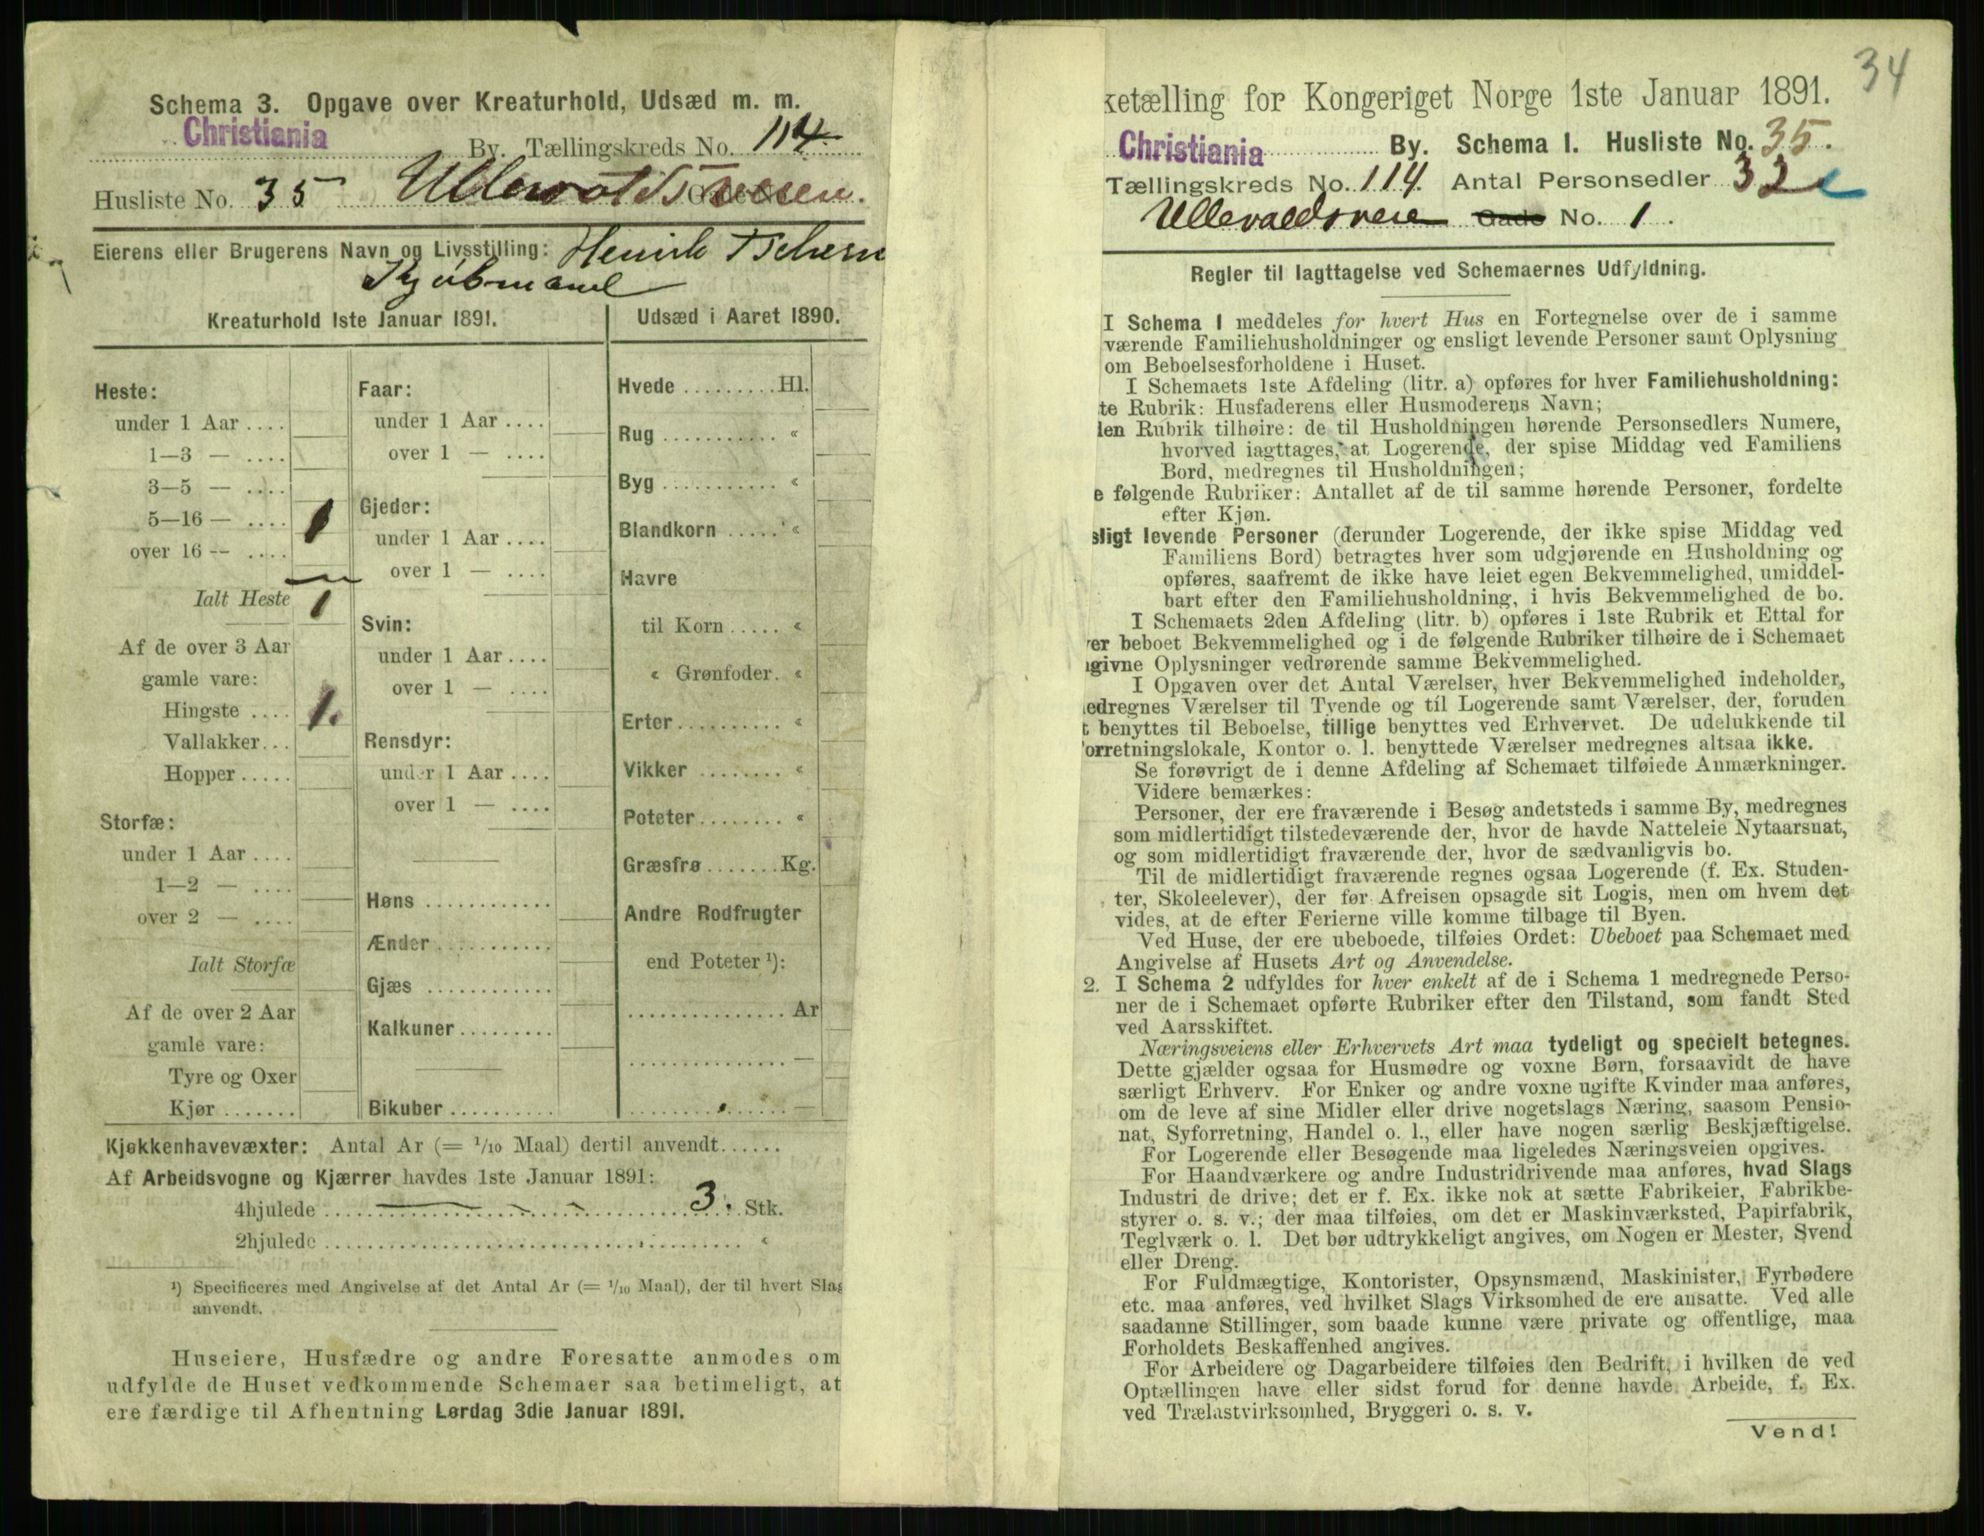 Schema 3. Opgave over Kreaturhold, Udsæd m. m.
Christiania By. Tællingskreds No. 114
Husliste No. 35 Ullevoldsveien Gade No.
Eierens eller Brugerens Navn og Livsstilling: Henrik Tschern
Kjøbmand
Kreaturhold 1ste Januar 1891.
Heste:
under 1 Aar ....
1—3 — ....
3—5 — ....
5—16 — .... 1
over 16 — ....
Ialt Heste 1
Af de over 3 Aar
gamle vare:
Hingste .... 1.
Vallakker...
Hopper.....
Storfæ:
under 1 Aar ....
1—2 — ....
over 2 — ....
Ialt Storfæ
Af de over 2 Aar
gamle vare:
Tyre og Oxer
Kjør.......
Faar:
under 1 Aar ....
over 1 — ....
Gjeder:
under 1 Aar ....
over 1 — ....
Svin:
under 1 Aar ....
over 1 — ....
Rensdyr:
under 1 Aar ....
over 1 — ....
Høns ............
Ænder...........
Gjæs ............
Kalkuner.........
Bikuber..........
Udsæd i Aaret 1890.
Hvede .........Hl.
Rug ........... «
Byg ........... «
Blandkorn ..... «
Havre
til Korn..... «
« Grønfoder. «
Erter.......... «
Vikker ........ «
Poteter........ «
Græsfrø.......Kg.
Andre Rodfrugter
end Poteter ¹):
............... Ar
............... —
............... —
Kjøkkenhavevæxter: Antal Ar (= 1/10 Maal) dertil anvendt......
Af Arbeidsvogne og Kjærrer havdes 1ste Januar 1891:
4hjulede ............ 3. Stk.
2hjulede ............ «
¹) Specificeres med Angivelse af det Antal Ar (= 1/10 Maal), der til hvert Slag
anvendt.
Huseiere, Husfædre og andre Foresatte anmodes om
udfylde de Huset vedkommende Schemaer saa betimeligt, at
ere færdige til Afhentning Lørdag 3die Januar 1891.
34
ketælling for Kongeriget Norge 1ste Januar 1891.
Christiania By. Schema 1. Husliste No. 35.
Tællingskreds No. 114. Antal Personsedler 32
Ullevaldsveie Gade No. 1.
Regler til Iagttagelse ved Schemaernes Udfyldning.
I Schema 1 meddeles for hvert Hus en Fortegnelse over de i samme
værende Familiehusholdninger og ensligt levende Personer samt Oplysning
om Beboelsesforholdene i Huset.
I Schemaets 1ste Afdeling (litr. a) opføres for hver Familiehusholdning:
te Rubrik: Husfaderens eller Husmoderens Navn;
den Rubrik tilhøire: de til Husholdningen hørende Personsedlers Numere,
hvorved iagttages, at Logerende, der spise Middag ved Familiens
Bord, medregnes til Husholdningen;
e følgende Rubriker: Antallet af de til samme hørende Personer, fordelte
efter Kjøn.
sligt levende Personer (derunder Logerende, der ikke spise Middag ved
Familiens Bord) betragtes hver som udgjørende en Husholdning og
opføres, saafremt de ikke have leiet egen Bekvemmelighed, umiddel-
bart efter den Familiehusholdning, i hvis Bekvemmelighed de bo.
I Schemaets 2den Afdeling (litr. b) opføres i 1ste Rubrik et Ettal for
er beboet Bekvemmelighed og i de følgende Rubriker tilhøire de i Schemaet
givne Oplysninger vedrørende samme Bekvemmelighed.
I Opgaven over det Antal Værelser, hver Bekvemmelighed indeholder,
edregnes Værelser til Tyende og til Logerende samt Værelser, der, foruden
t benyttes til Beboelse, tillige benyttes ved Erhvervet. De udelukkende til
orretningslokale, Kontor o. l. benyttede Værelser medregnes altsaa ikke.
Se forøvrigt de i denne Afdeling af Schemaet tilføiede Anmærkninger.
Videre bemærkes:
Personer, der ere fraværende i Besøg andetsteds i samme By, medregnes
som midlertidigt tilstedeværende der, hvor de havde Natteleie Nytaarsnat,
og som midlertidigt fraværende der, hvor de sædvanligvis bo.
Til de midlertidigt fraværende regnes ogsaa Logerende (f. Ex. Studen-
ter, Skoleelever), der før Afreisen opsagde sit Logis, men om hvem det
vides, at de efter Ferierne ville komme tilbage til Byen.
Ved Huse, der ere ubeboede, tilføies Ordet: Ubeboet paa Schemaet med
Angivelse af Husets Art og Anvendelse.
2. I Schema 2 udfyldes for hver enkelt af de i Schema 1 medregnede Perso-
ner de i Schemaet opførte Rubriker efter den Tilstand, som fandt Sted
ved Aarsskiftet.
Næringsveiens eller Erhvervets Art maa tydeligt og specielt betegnes.
Dette gjælder ogsaa for Husmødre og voxne Børn, forsaavidt de have
særligt Erhverv. For Enker og andre voxne ugifte Kvinder maa anføres,
om de leve af sine Midler eller drive nogetslags Næring, saasom Pensio-
nat, Syforretning, Handel o. l., eller have nogen særlig Beskjæftigelse.
For Logerende eller Besøgende maa ligeledes Næringsveien opgives.
For Haandværkere og andre Industridrivende maa anføres, hvad Slags
Industri de drive; det er f. Ex. ikke nok at sætte Fabrikeier, Fabrikbe-
styrer o. s. v.; der maa tilføies, om det er Maskinværksted, Papirfabrik,
Teglværk o. l. Det bør udtrykkeligt angives, om Nogen er Mester, Svend
eller Dreng.
For Fuldmægtige, Kontorister, Opsynsmænd, Maskinister, Fyrbødere
etc. maa anføres, ved hvilket Slags Virksomhed de ere ansatte. Ved alle
saadanne Stillinger, som baade kunne være private og offentlige, maa
Forholdets Beskaffenhed angives.
For Arbeidere og Dagarbeidere tilføies den Bedrift, i hvilken de ved
Optællingen have eller sidst forud for denne havde Arbeide, f. Ex.
ved Trælastvirksomhed, Bryggeri o. s. v.
Vend!